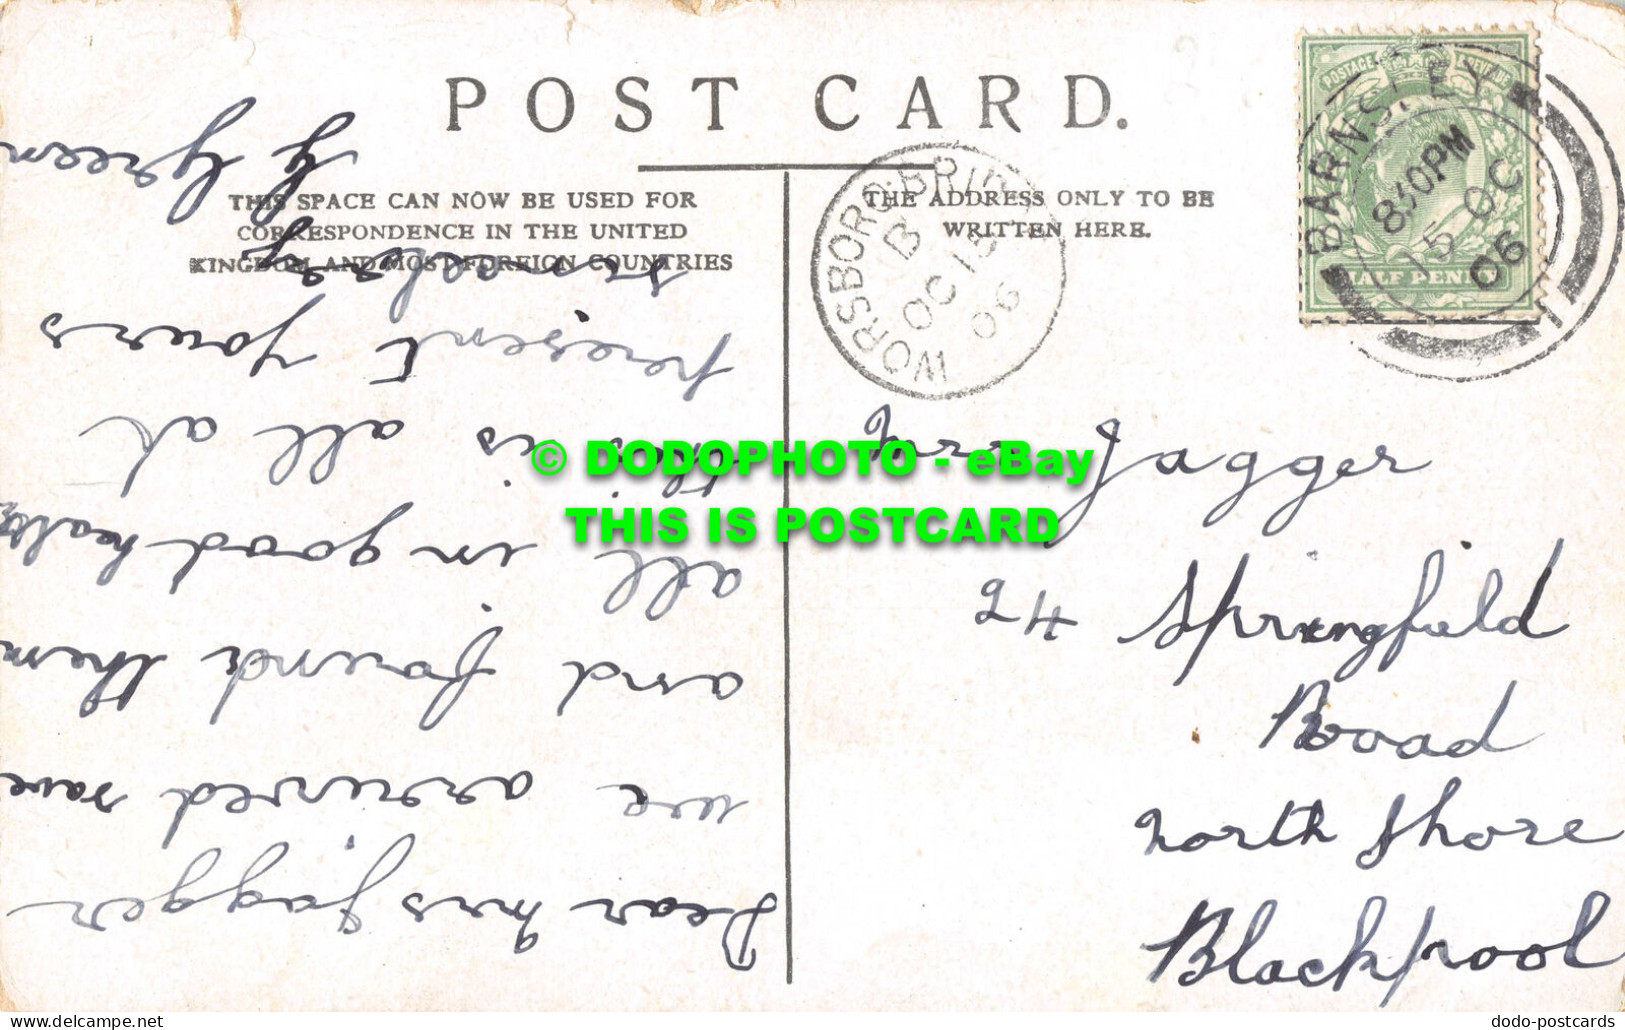 POST CARD.
THIS SPACE CAN NOW BE USED FOR
CORRESPONDENCE IN THE UNITED
KINGDOM AND MOST FOREIGN COUNTRIES
THE ADDRESS ONLY TO BE
WRITTEN HERE.
POSTAGE REVENUE
HALF PENNY
BARNSLEY
8 30PM
15 OC
06
1
WORSBORO BRIDGE
B
OC 15
06
Mrs Jagger
24 Springfield
Road
North Shore
Blackpool
Dear Mrs Jagger
we arrived save
and found them
all in good healt
this is all at
present Yours
G Green
© DODOPHOTO - eBay
THIS IS POSTCARD
www.delcampe.net
dodo-postcards